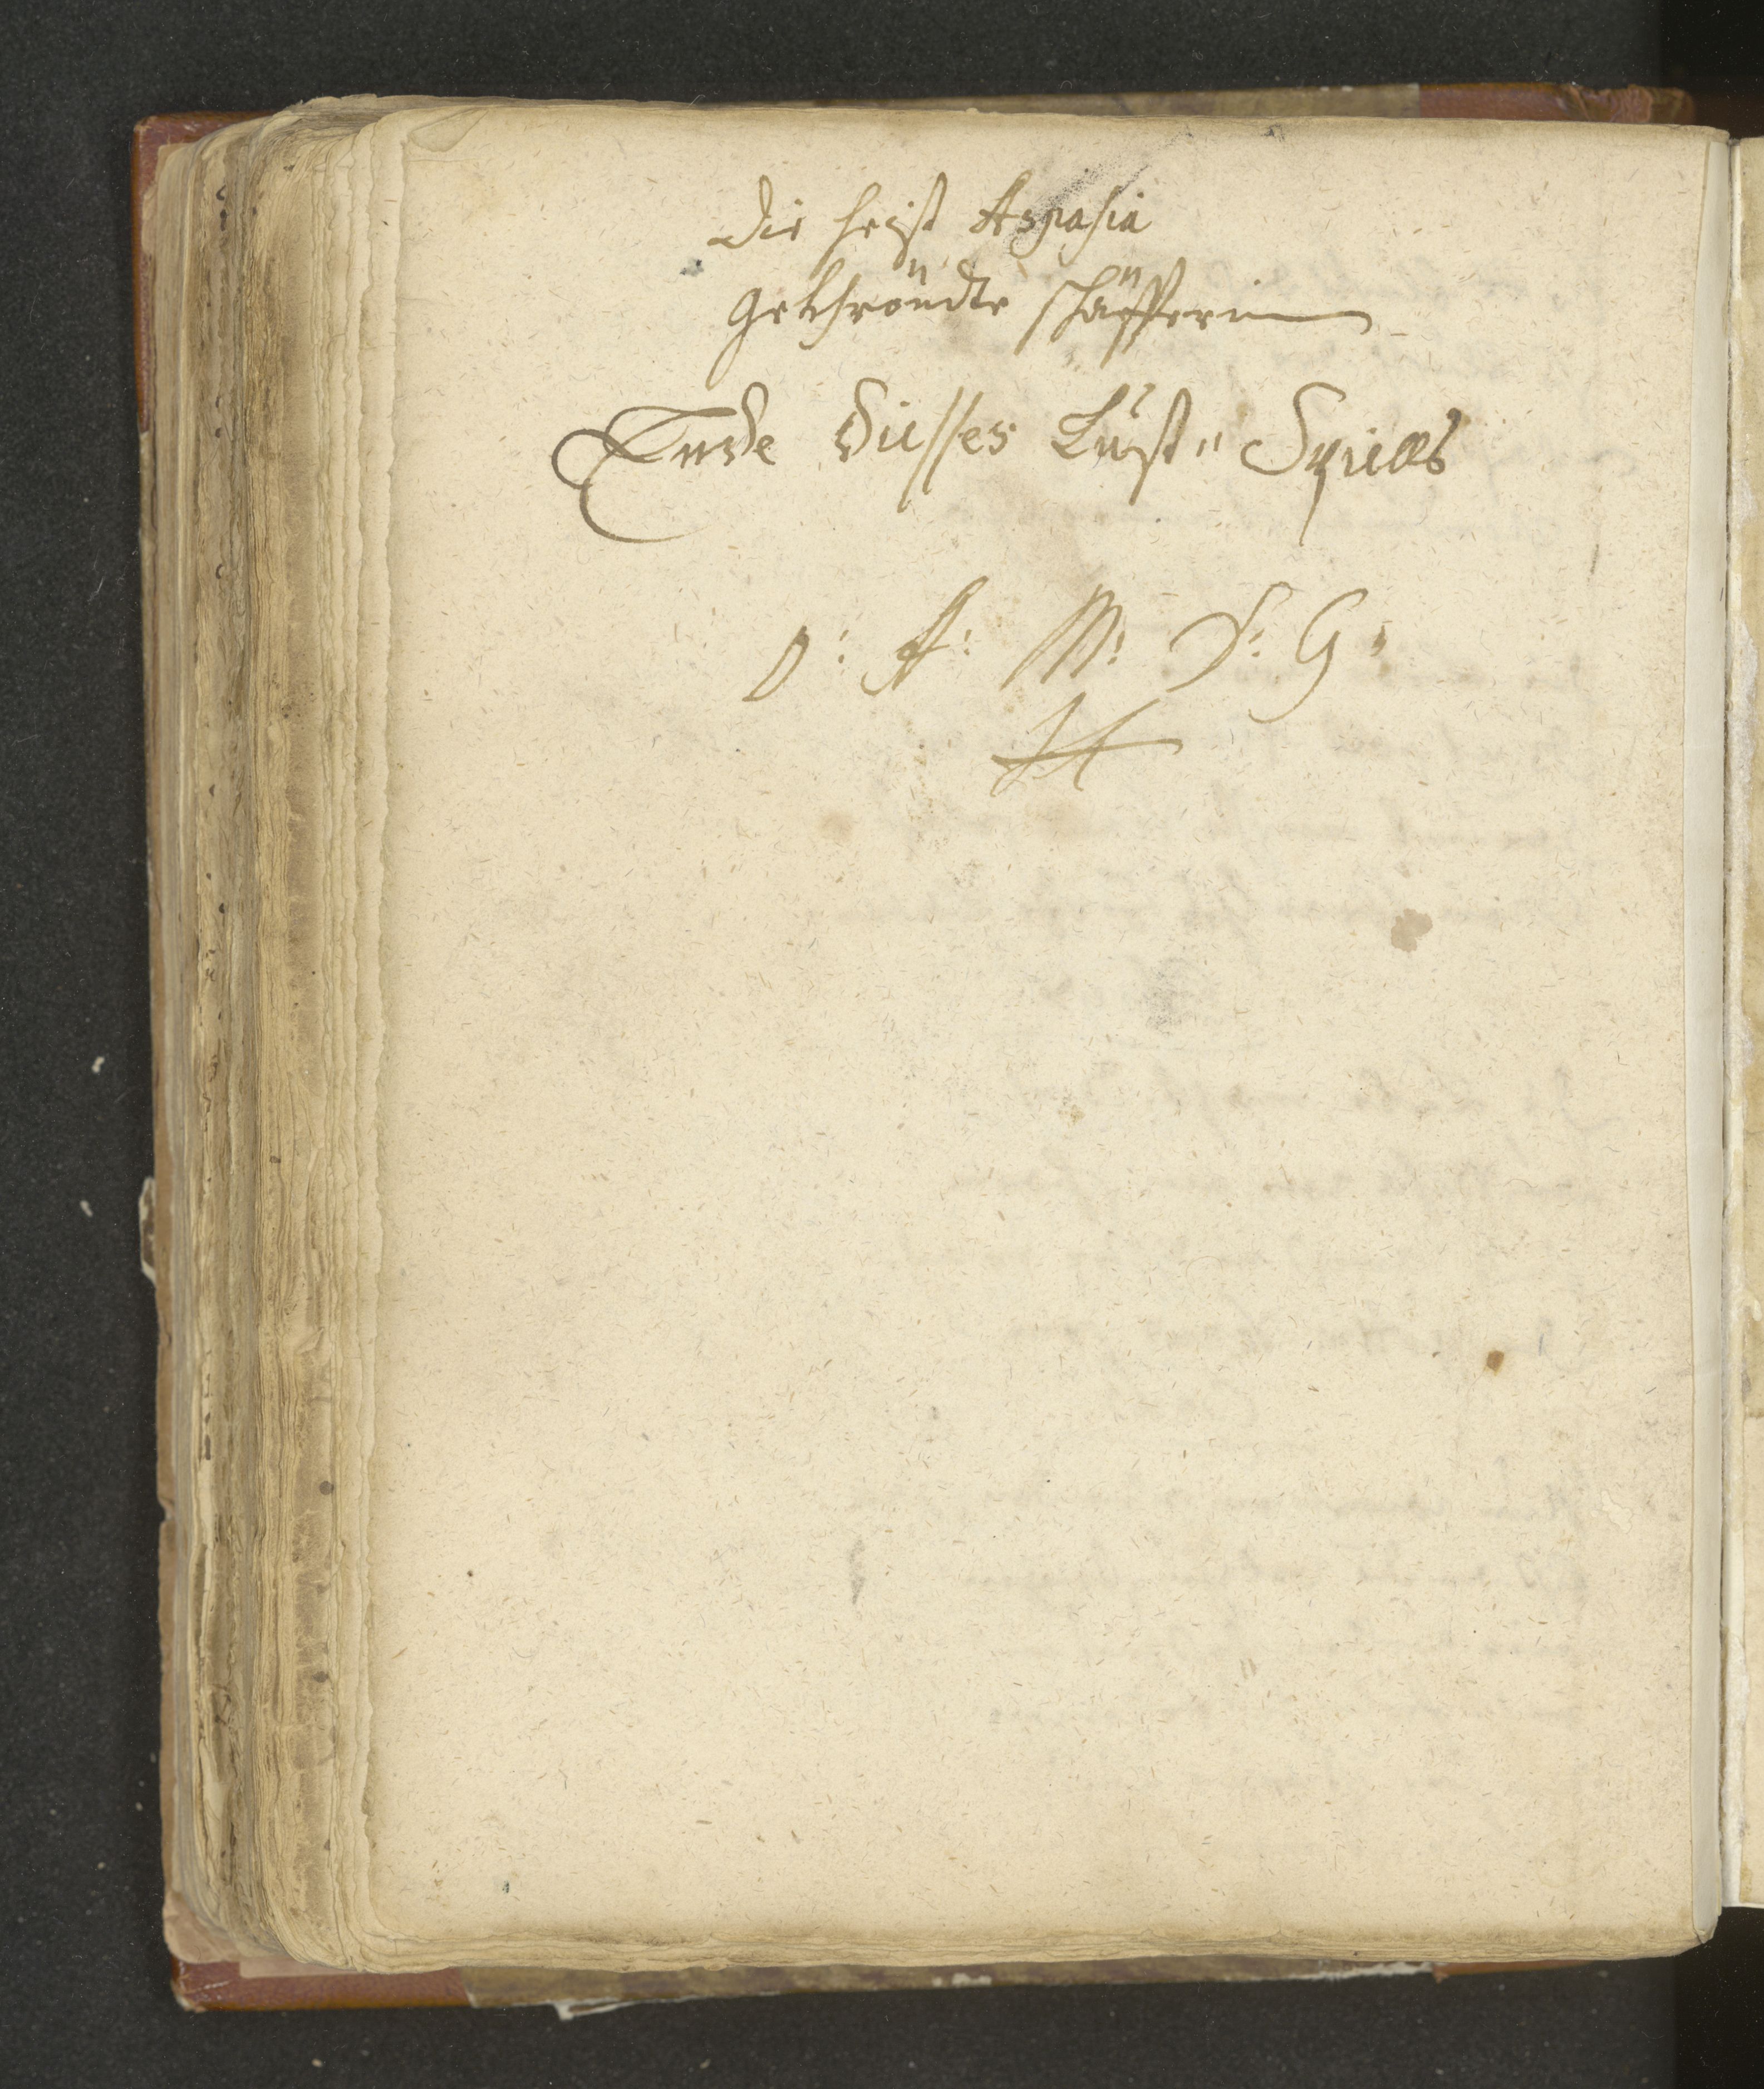 Die heist Aspasia
gekhröndte schäfferin
Ende diesses Lust= Spiells
O: A: M: D: G:
H